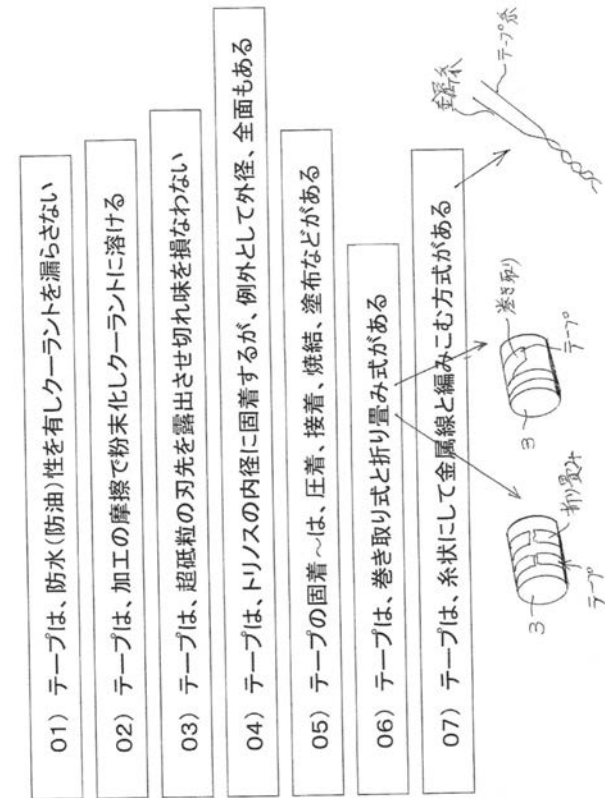 01） テープは、防水(防油)性を有しクーラントを漏らさない
02） テープは、加工の摩擦で粉末化しクーラントに溶ける
03） テープは、超砥粒の刃先を露出させ切れ味を損なわない
04） テープは、トリノスの内径に固着するが、例外として外径、全面もある
05） テープの固着～は、圧着、接着、焼結、塗布などがある
06） テープは、巻き取り式と折り畳み式がある
07） テープは、糸状にして金属線と編みこむ方式がある
3
折り畳み
テープ
3
巻き取り
テープ
金属糸
テープ糸